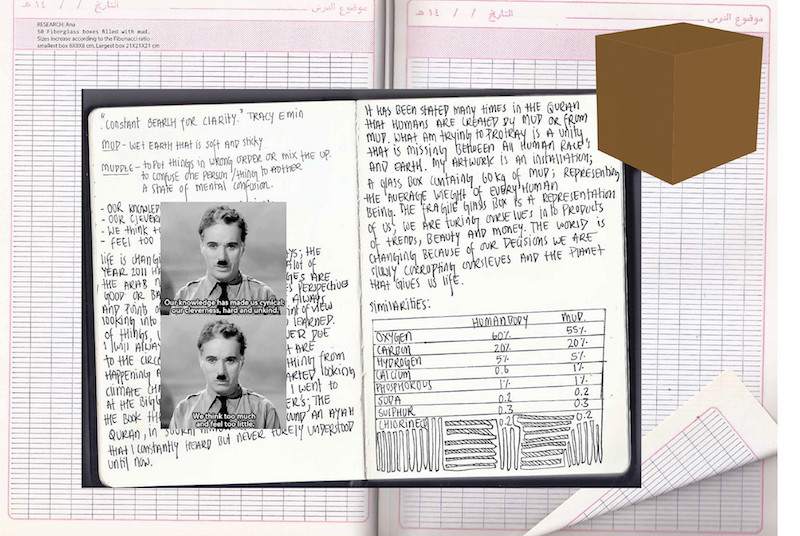 موضوع الدرس
التاريخ / / ١٤ هـ
موضوع الدرس
التاريخ / / ١٤ هـ
RESEARCH: Ana
50 Fiberglass boxes filled with mud.
Sizes increase according to the Fibonacci ratio -
smallest box 8X8X8 cm, Largest box 21X21X21 cm
"CONSTANT SEARCH FOR CLARITY." TRACY EMIN
MUD - WET EARTH THAT IS SOFT AND STICKY
MUDDLE - TO PUT THINGS IN WRONG ORDER OR MIX THE UP.
TO CONFUSE ONE PERSON/THING TO ANOTHER
A STATE OF MENTAL CONFUSION.
- OUR KNOWLED
- OUR CLEVER
- WE THINK T
- FEEL TOO
LIFE IS CHANGI
YEAR 2011 HA
THE ARAB
GOOD OR BA
PERSPECTIVE
AND POINTS O
ALWAYS
LOOKING INTO
OF VIEW
OF THINGS,
LEARNED.
I WILL ALWAY
DUE
TO THE CIRC
ARE
HAPPENING A
THING FROM
CLIMATE CHA
LOOKING
AT THE BIGG
I WENT TO
THE BOOK TH
THE
QURAN, IN
AN AYAH
THAT I CONSTANTLY HEARD BUT NEVER TURELY UNDERSTOOD
UNTIL NOW.
Our knowledge has made us cynical;
our cleverness, hard and unkind.
We think too much
and feel too little.
IT HAS BEEN STATED MANY TIMES IN THE QURAN
THAT HUMANS ARE CREATED BY MUD OR FROM
MUD. WHAT AM TRYING TO PROTRAY IS A UNITY
THAT IS MISSING BETWEEN ALL HUMAN RACE'S
AND EARTH. MY ARTWORK IS AN INSTALLATION;
A GLASS BOX CONTAING 60KG OF MUD; REPRESENTING
THE AVERAGE WEIGHT OF EVERY HUMAN
BEING. THE FRAGILE GLASS BOX IS A REPRESENTATION
OF US; WE ARE TURING OURSELVES INTO PRODUCTS
OF TRENDS, BEAUTY AND MONEY. THE WORLD IS
CHANGING BECAUSE OF OUR DECISIONS WE ARE
SLOWLY CORRUPTING OURSLEVES AND THE PLANET
THAT GIVES US LIFE.
SIMILARITIES:
HUMAN BODY MUD.
OXYGEN 60% 55%
CARBON 20% 20%
HYDROGEN 5% 5%
CALCIUM 0.6 1%
PHOSPOROUS 1% 1%
SODA 0.2 0.2
SULPHUR 0.3 0.3
CHLORINE 0.2 0.2